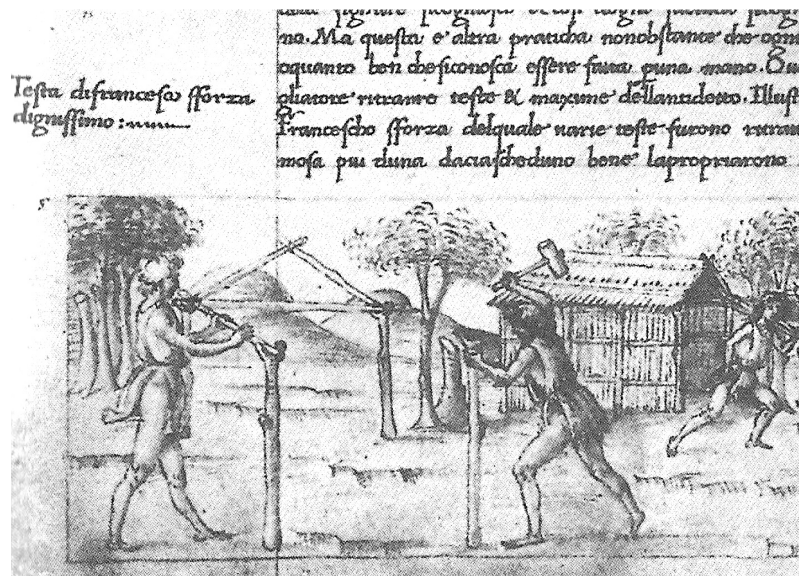 Testa difrancesco sforza
dignissimo:
na. Ma questa e altra praticha nonobstante che ogni
oquanto ben che siconosca essere fatta puna mano.
gliatore ritrarre teste & maxime dellantidetto. Illust
Francescho sforza delquale varie teste furono ritrau
mosa piu duna daciascheduno bene lapropriarono